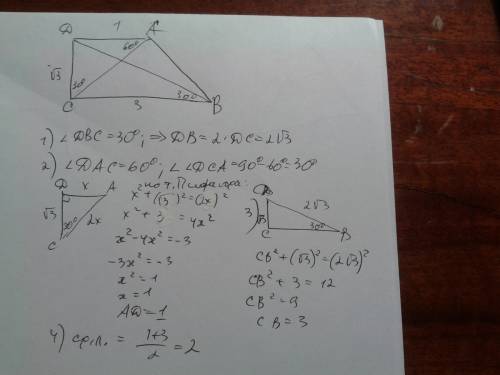 D 1 A
60°
√3
30° 30°
C 3 B
1) ∠DBC=30°; ⇒ DB=2·DC=2√3
2) ∠DAC=60°; ∠∠DCA=90°-60°=30°
по т. Пифагора:
D x A
√3 2x
30°
C
x²+(√3)²=(2x)²
x²+3=4x²
x²-4x²=-3
-3x²=-3
x²=1
x=1
AD=1
3)
2√3
√3
30°
C B
CB²+(√3)²=(2√3)²
CB²+3=12
CB²=9
CB=3
4) ср.л. = 1+3/2 = 2